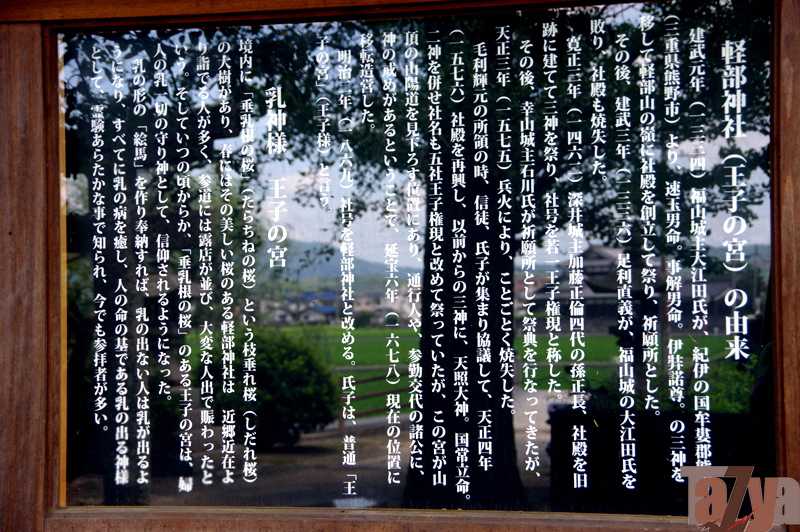 軽部神社（王子の宮）の由来
建武元年（一三三四）福山城主大江田氏が、紀伊の国牟婁郡
（三重県熊野市）より、速玉男命。事解男命。伊弉諾尊。の三神を
移して軽部山の嶺に社殿を創立して祭り、祈願所とした。
その後、建武三年（一三三六）足利直義が、福山城の大江田氏を
敗り、社殿も焼失した。
寛正二年（一四六一）深井城主加藤正倫四代の孫正長、社殿を旧
跡に建てて三神を祭り、社号を若一王子権現と称した。
その後、幸山城主石川氏が祈願所として祭典を行なってきたが、
天正三年（一五七五）兵火により、ことごとく焼失した。
毛利輝元の所領の時、信徒、氏子が集まり協議して、天正四年
（一五七六）社殿を再興し、以前からの三神に、天照大神。国常立命。
二神を併せ社名も五社王子権現と改めて祭っていたが、この宮が山
頂の山陽道を見下ろす位置にあり、通行人や、参勤交代の諸公に、
神の戒めがあるということで、延宝六年（一六七八）現在の位置に
移転造営した。
明治二年（一八六九）社号を軽部神社と改める。氏子は、普通「王
子の宮」（王子様）と言う。
乳神様 王子の宮
境内に「垂乳根の桜」（たらちねの桜）という枝垂れ桜（しだれ桜）
の大樹があり、春にはその美しい桜のある軽部神社は 近郷近在よ
り詣でる人が多く、参道には露店が並び、大変な人出で賑わったと
いう。そしていつの頃からか、「垂乳根の桜」のある王子の宮は、婦
人の乳一切の守り神として、信仰されるようになった。
乳の形の「絵馬」を作り奉納すれば、乳の出ない人は乳が出るよ
うになり、すべてに乳の病を癒し、人の命の基である乳の出る神様
として、霊験あらたかな事で知られ、今でも参拝者が多い。
TaZya